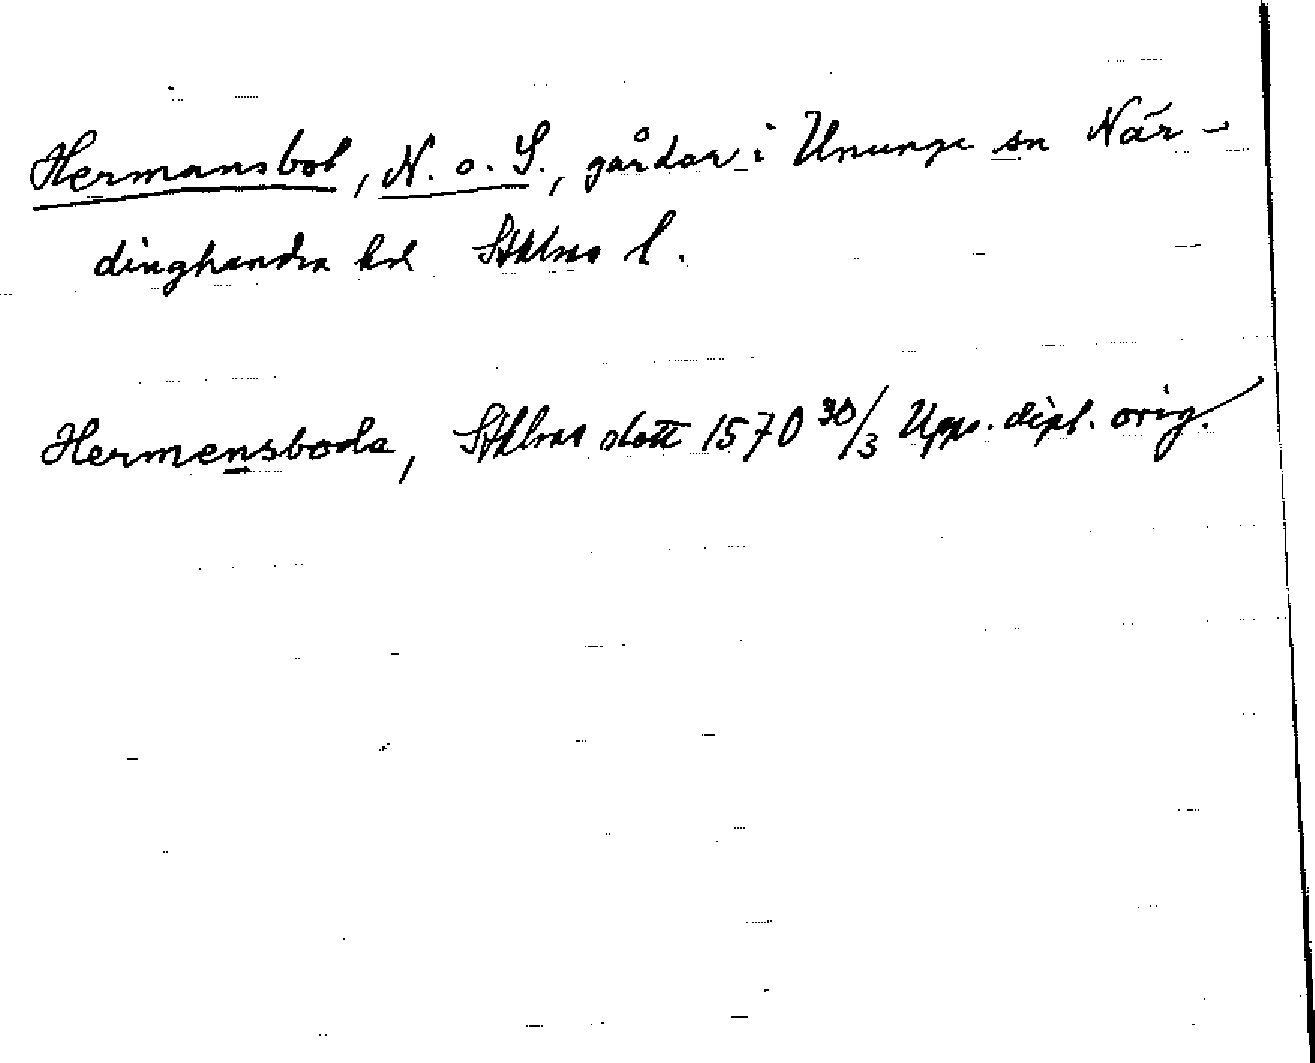 Hermansbol, N. o. S., gårdar i Ununge sn När-
dinghundra hd Sthlms l.
Hermensboda, Sthlms slott 1570 30/3 Upps. dipl. orig.